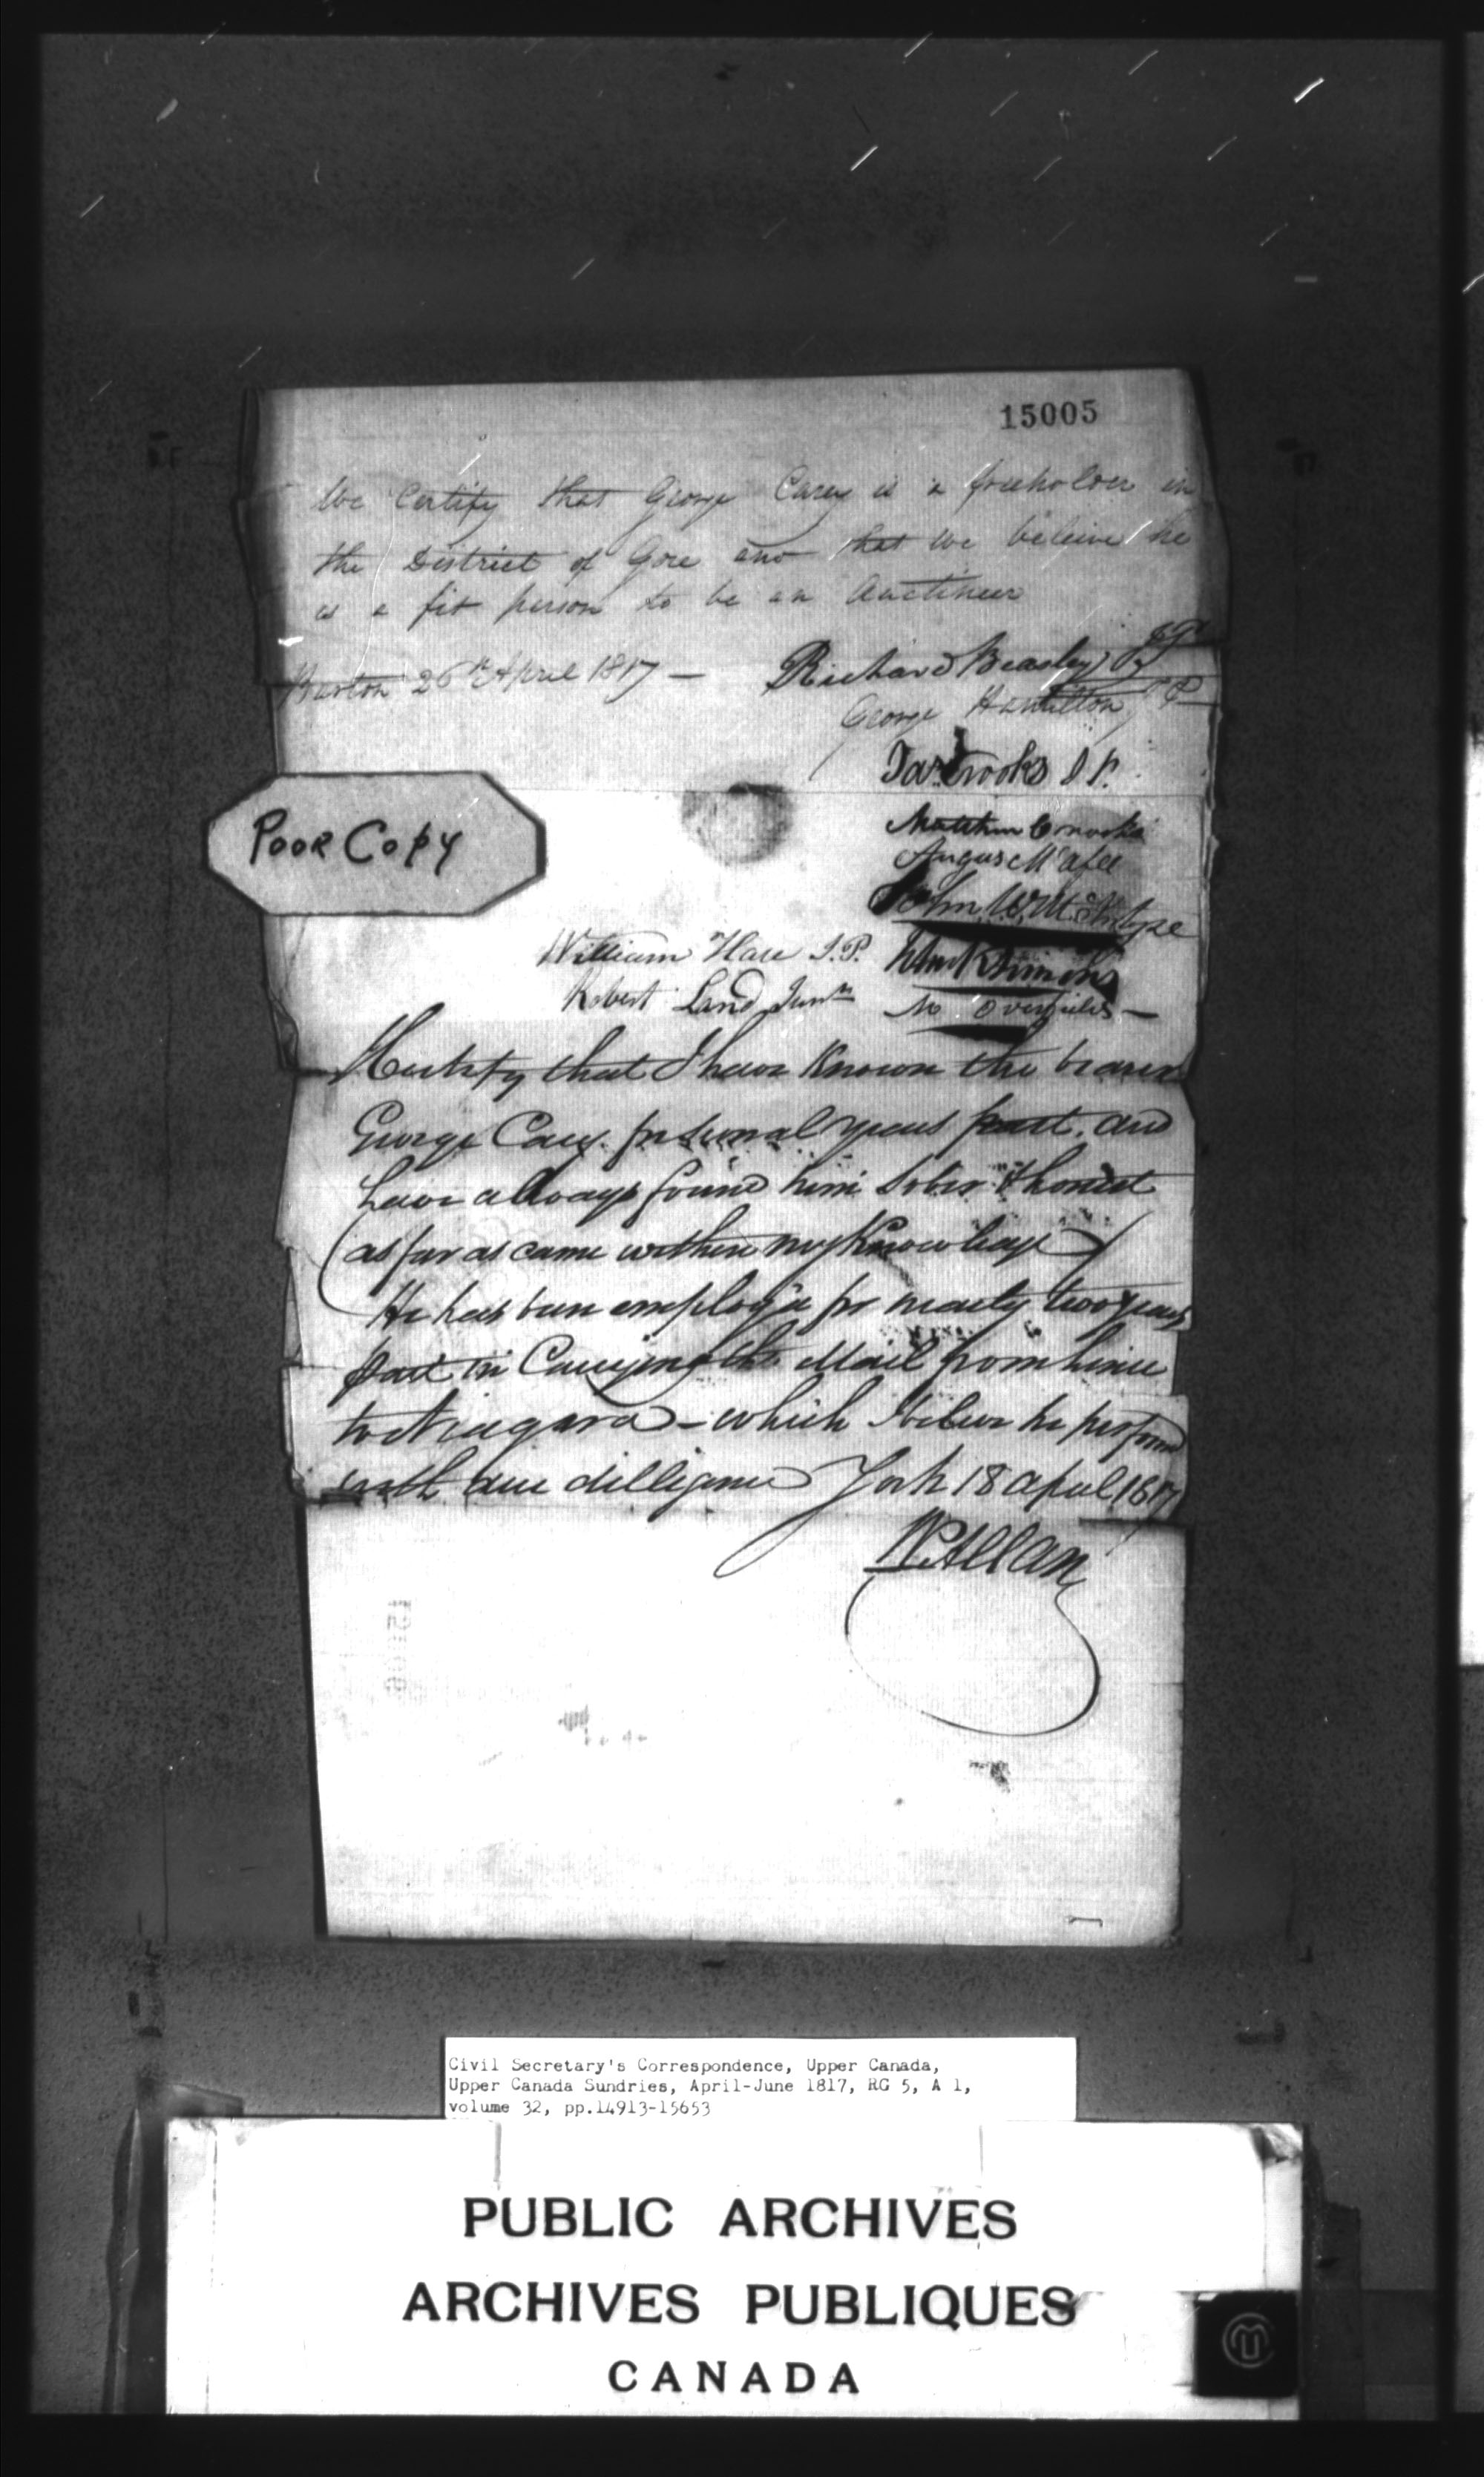 15005
We Certify that George Carey is a freeholder in
the District of Gore and that we beleive he
is a fit person to be an Auctineer
Barton 26th April 1817 —
Richard Beasley JP
George Hamilton JP
Jas Crooks J P.
Matthew Crooks
Angus McAfee
John W. McIntyre
William Hare J.P.
Robert Land Junr
M Overfield —
Poor Copy
I Certify that I have Known the bearer
George Carey for several years past. and
have always found him Sober & honest
(as far as came within my Knowledge)
He has been employ'd for nearly two years
past in Carrying the Mail from hence
to Niagara — which I beleve he perform
with due dilligence York 18 April 1817
W Allan
Civil Secretary's Correspondence, Upper Canada,
Upper Canada Sundries, April-June 1817, RG 5, A 1,
volume 32, pp.14913-15653
PUBLIC ARCHIVES
ARCHIVES PUBLIQUES
CANADA